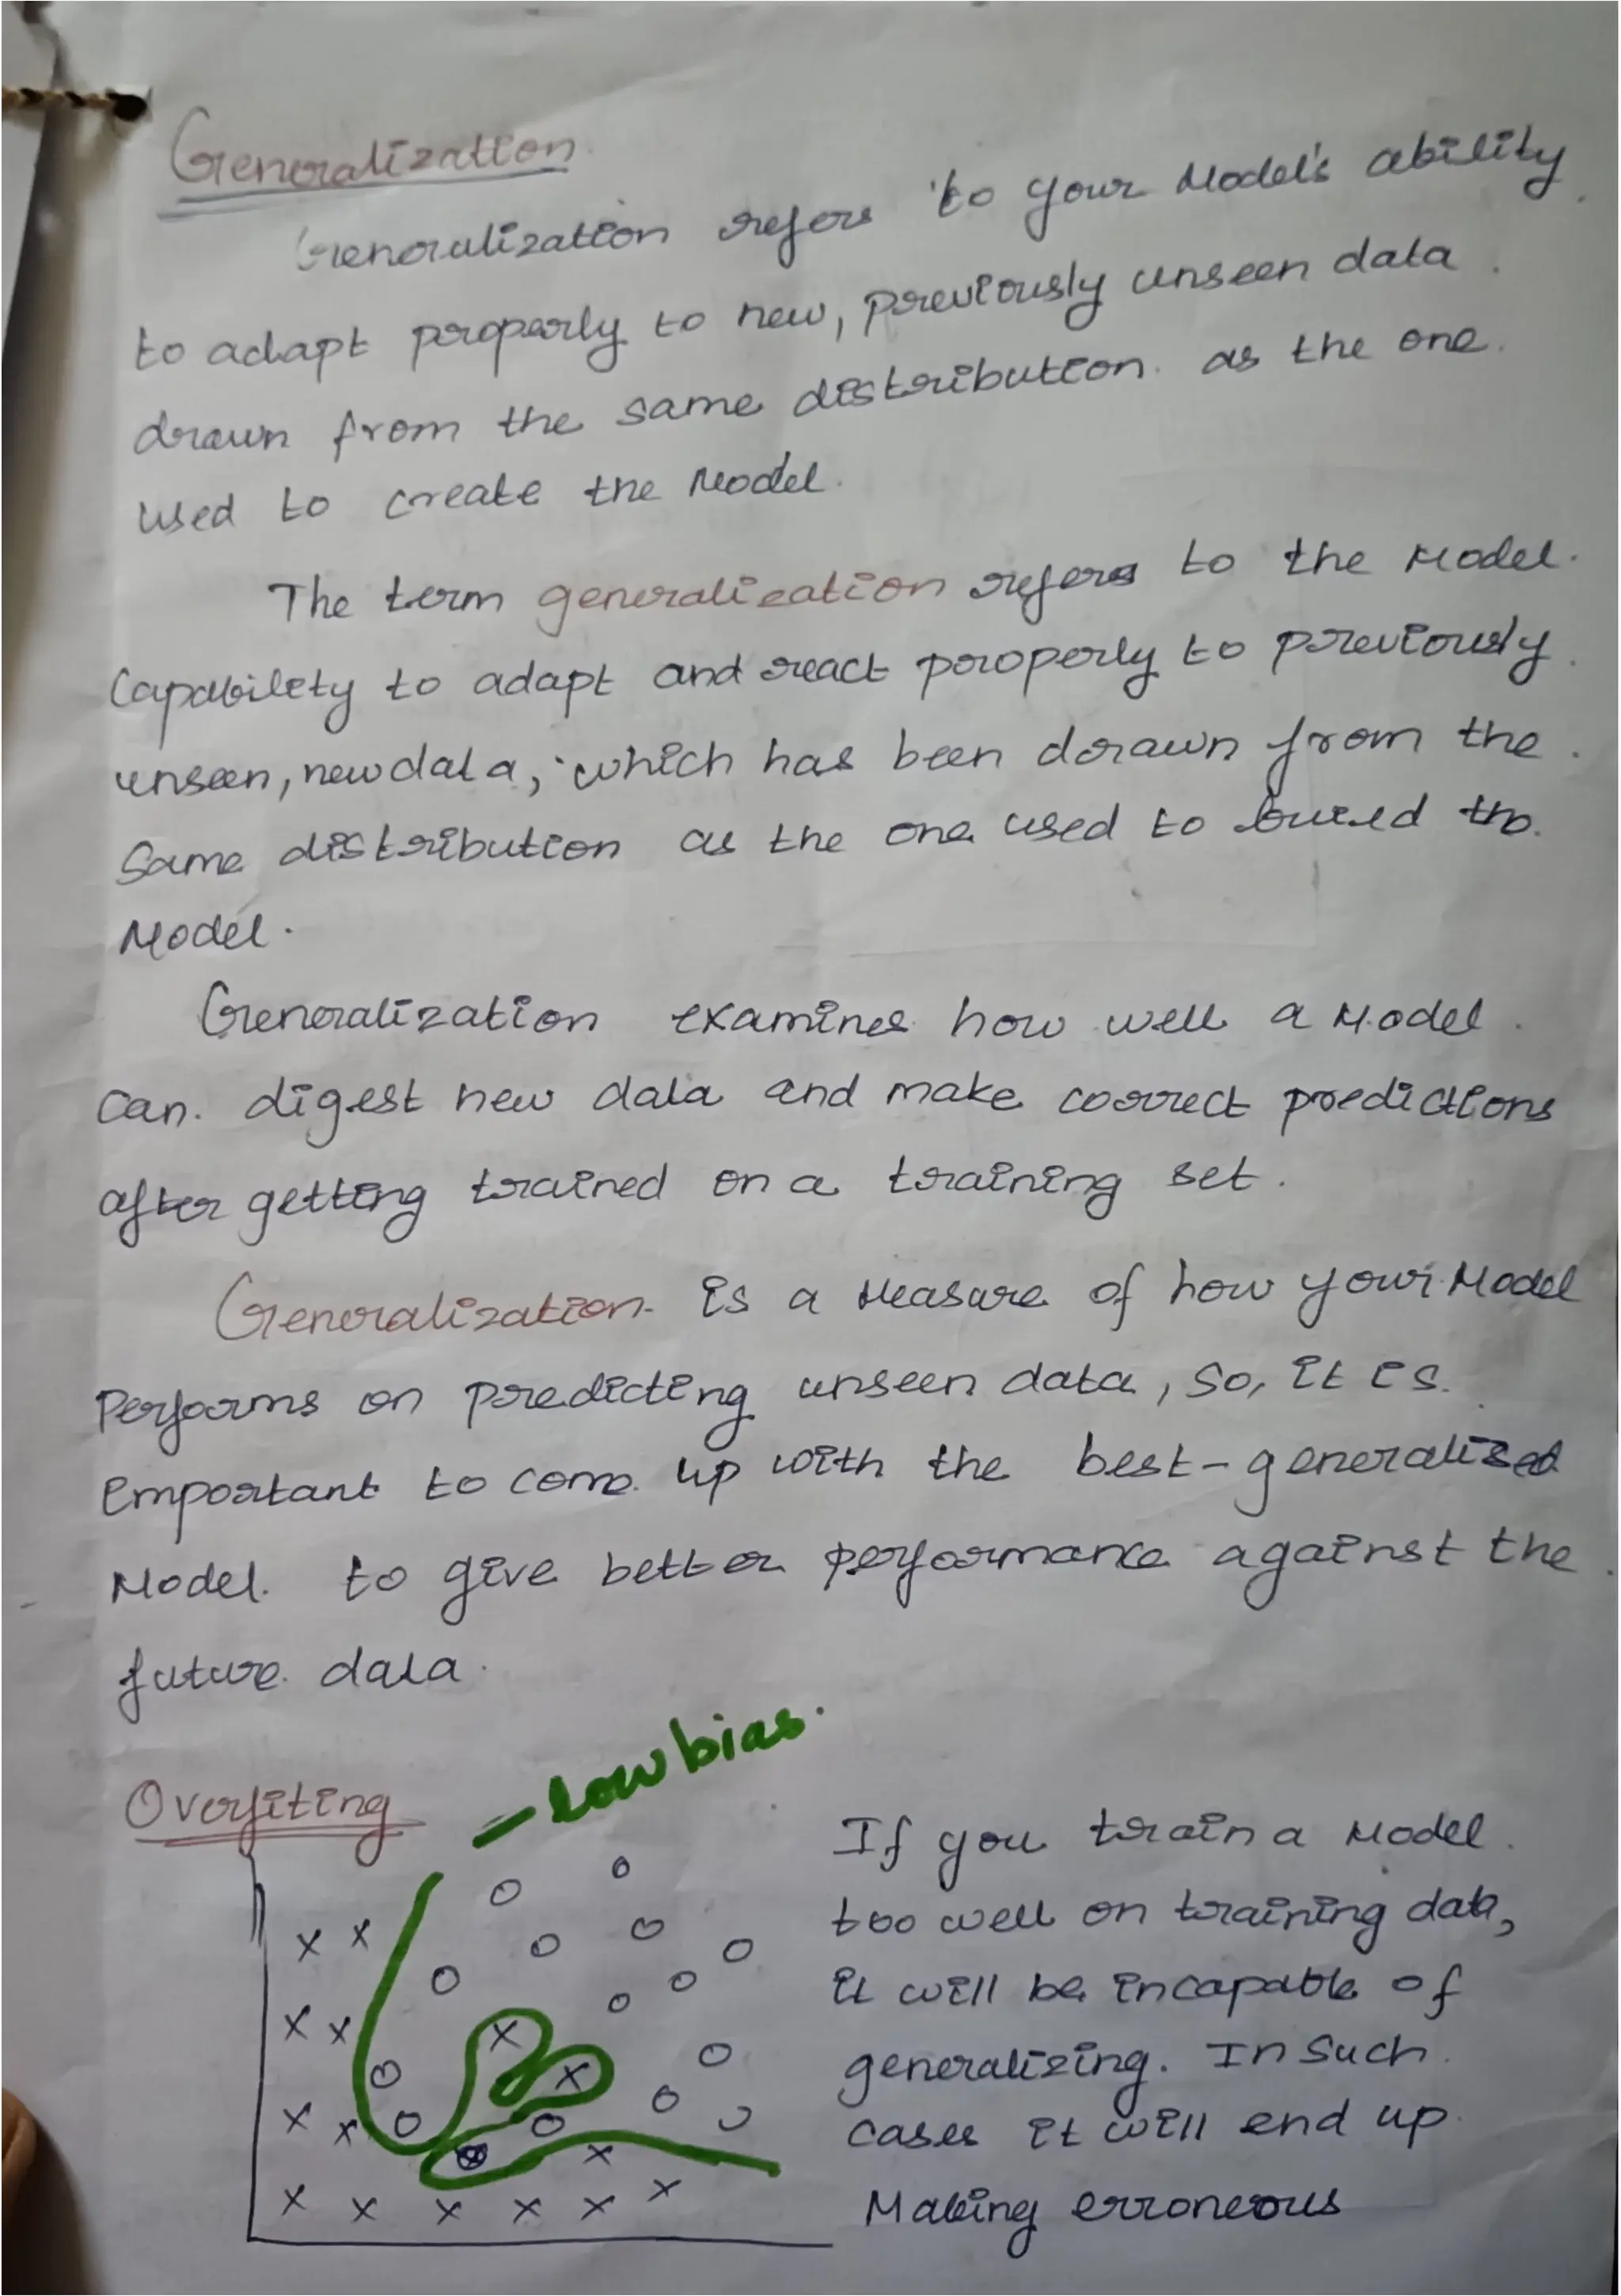 Generalization
Generalization refers to your Model's ability
to adapt properly to new, previously unseen data
drawn from the same distribution as the one
used to create the Model.
The term generalization refers to the Model
Capability to adapt and react properly to previously
unseen, new data, which has been drawn from the
Same distribution as the one used to build the
Model.
Generalization examines how well a Model
can digest new data and make correct predictions
after getting trained on a training set.
Generalization is a Measure of how your Model
Performs on predicting unseen data, So, it is
important to come up with the best-generalized
Model to give better performance against the
future data.
Overfiting - low bias.
If you train a Model
too well on training data,
it will be incapable of
generalizing. In Such
cases it will end up
Making erroneous